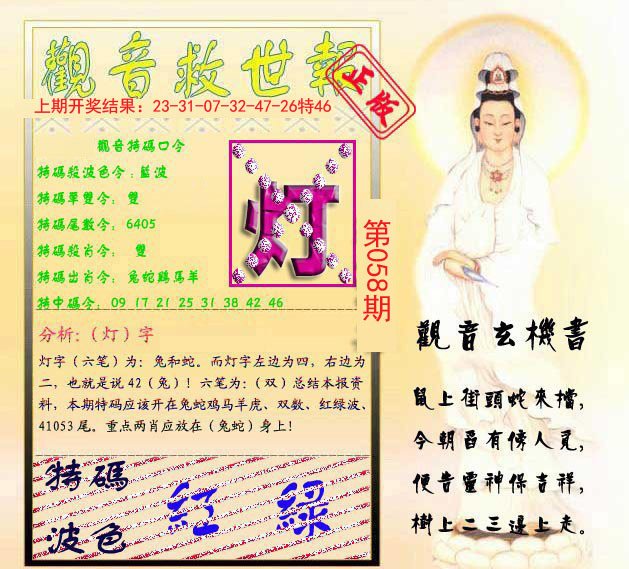 觀音救世報
正版
上期开奖结果：23-31-07-32-47-26特46
觀音特碼口令
特碼殺波色令：藍波
特碼單雙令： 雙
特碼尾數令： 6405
特碼殺肖令： 雙
特碼出肖令： 兔蛇鷄馬羊
特中碼令： 09 17 21 25 31 38 42 46
灯
第058期
分析：（灯）字
灯字（六笔）为：兔和蛇。而灯字左边为四，右边为
二，也就是说 42（兔）！六笔为：（双）总结本报资
料，本期特码应该开在兔蛇鸡马羊虎、双数、红绿波、
41053 尾。重点两肖应放在（兔蛇）身上！
特碼
波色
紅 綠
觀音玄機書
鼠上街頭蛇來擋，
今朝酉有傍人見，
便告靈神保吉祥，
樹上二三邊上走。